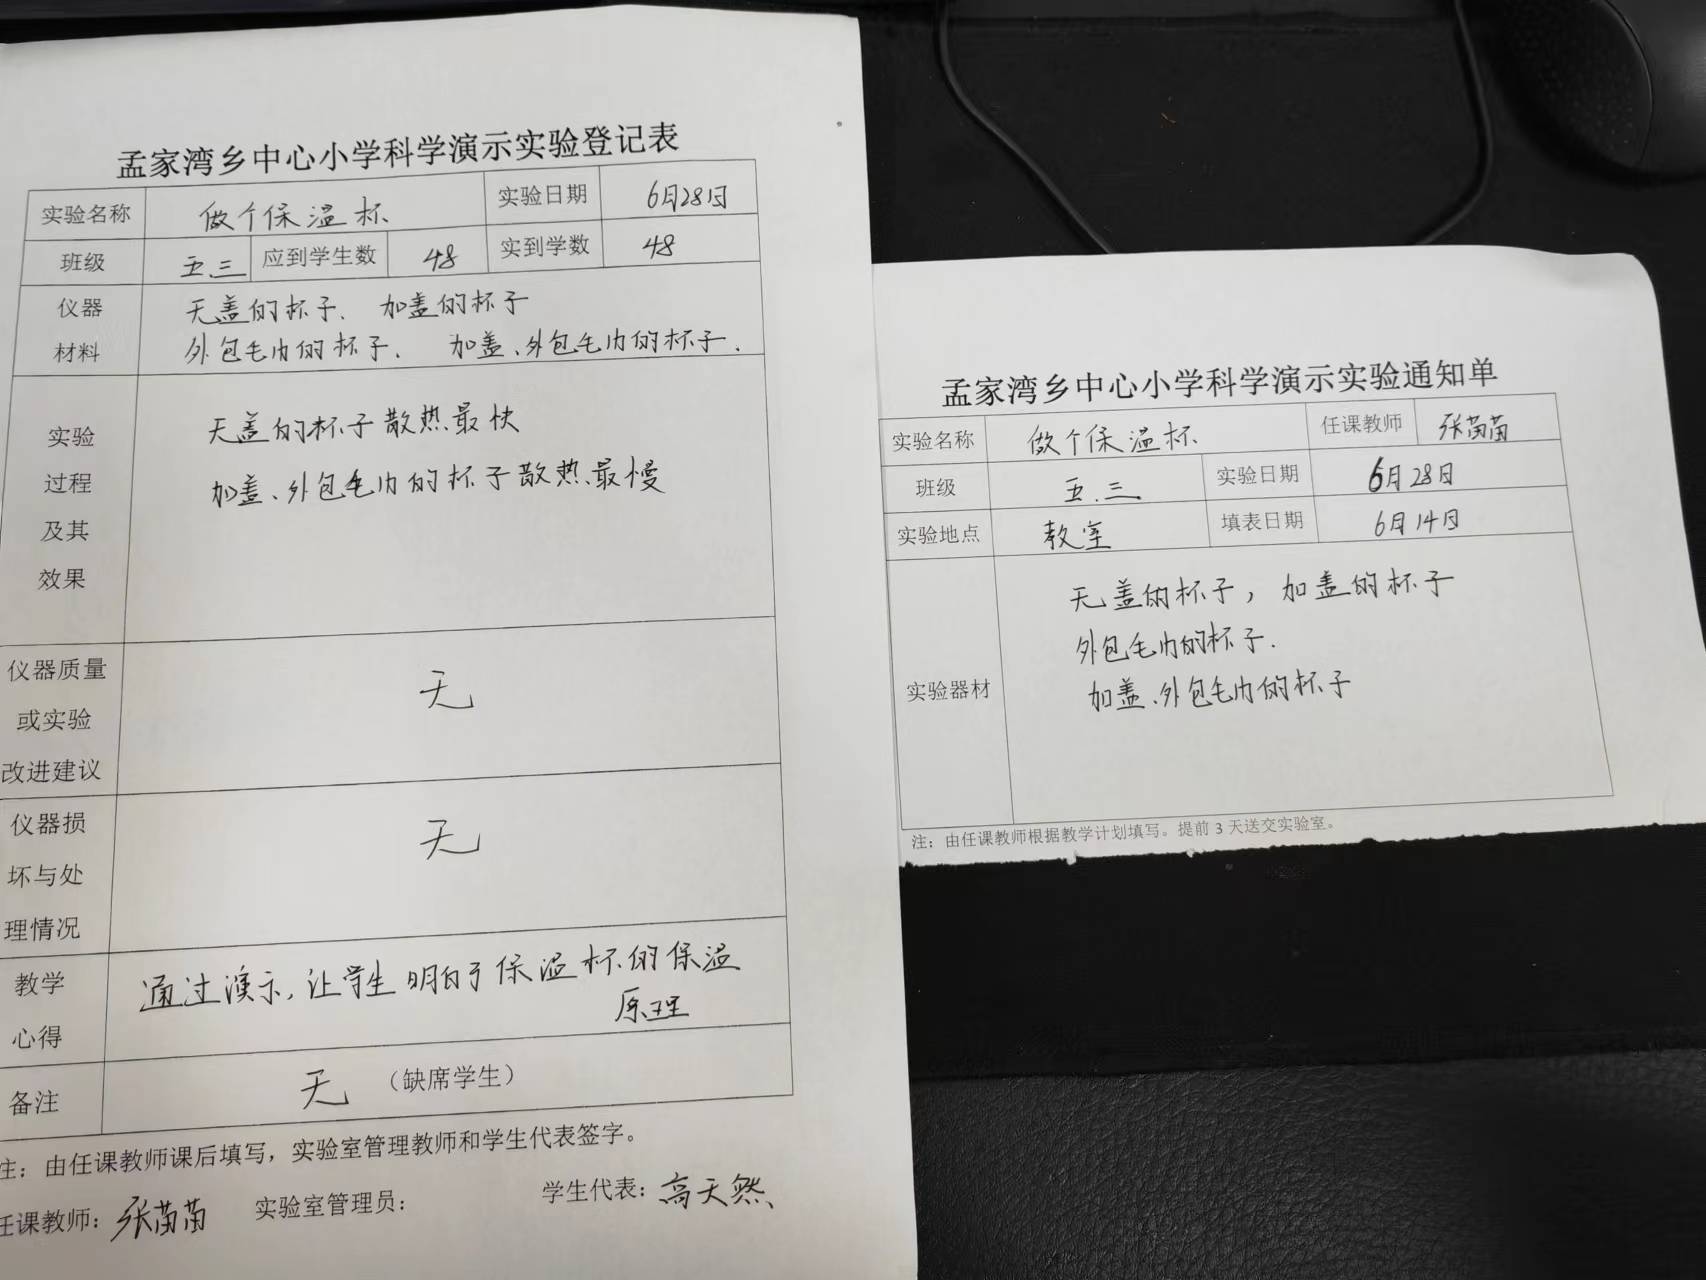 孟家湾乡中心小学科学演示实验登记表
实验名称 做个保温杯 实验日期 6月28日
班级 五.三 应到学生数 48 实到学数 48
仪器 无盖的杯子. 加盖的杯子
材料 外包毛巾的杯子. 加盖、外包毛巾的杯子.
实验
过程
及其
效果
无盖的杯子散热最快
加盖、外包毛巾的杯子散热最慢
仪器质量
或实验
改进建议
无
仪器损
坏与处
理情况
无
教学
心得
通过演示,让学生明白了保温杯的保温
原理
备注 无 （缺席学生）
注：由任课教师课后填写，实验室管理教师和学生代表签字。
任课教师：张苗苗 实验室管理员： 学生代表：高天然
孟家湾乡中心小学科学演示实验通知单
实验名称 做个保温杯 任课教师 张苗苗
班级 五.三 实验日期 6月28日
实验地点 教室 填表日期 6月14日
实验器材
无盖的杯子，加盖的杯子
外包毛巾的杯子.
加盖、外包毛巾的杯子
注：由任课教师根据教学计划填写。提前 3 天送交实验室。